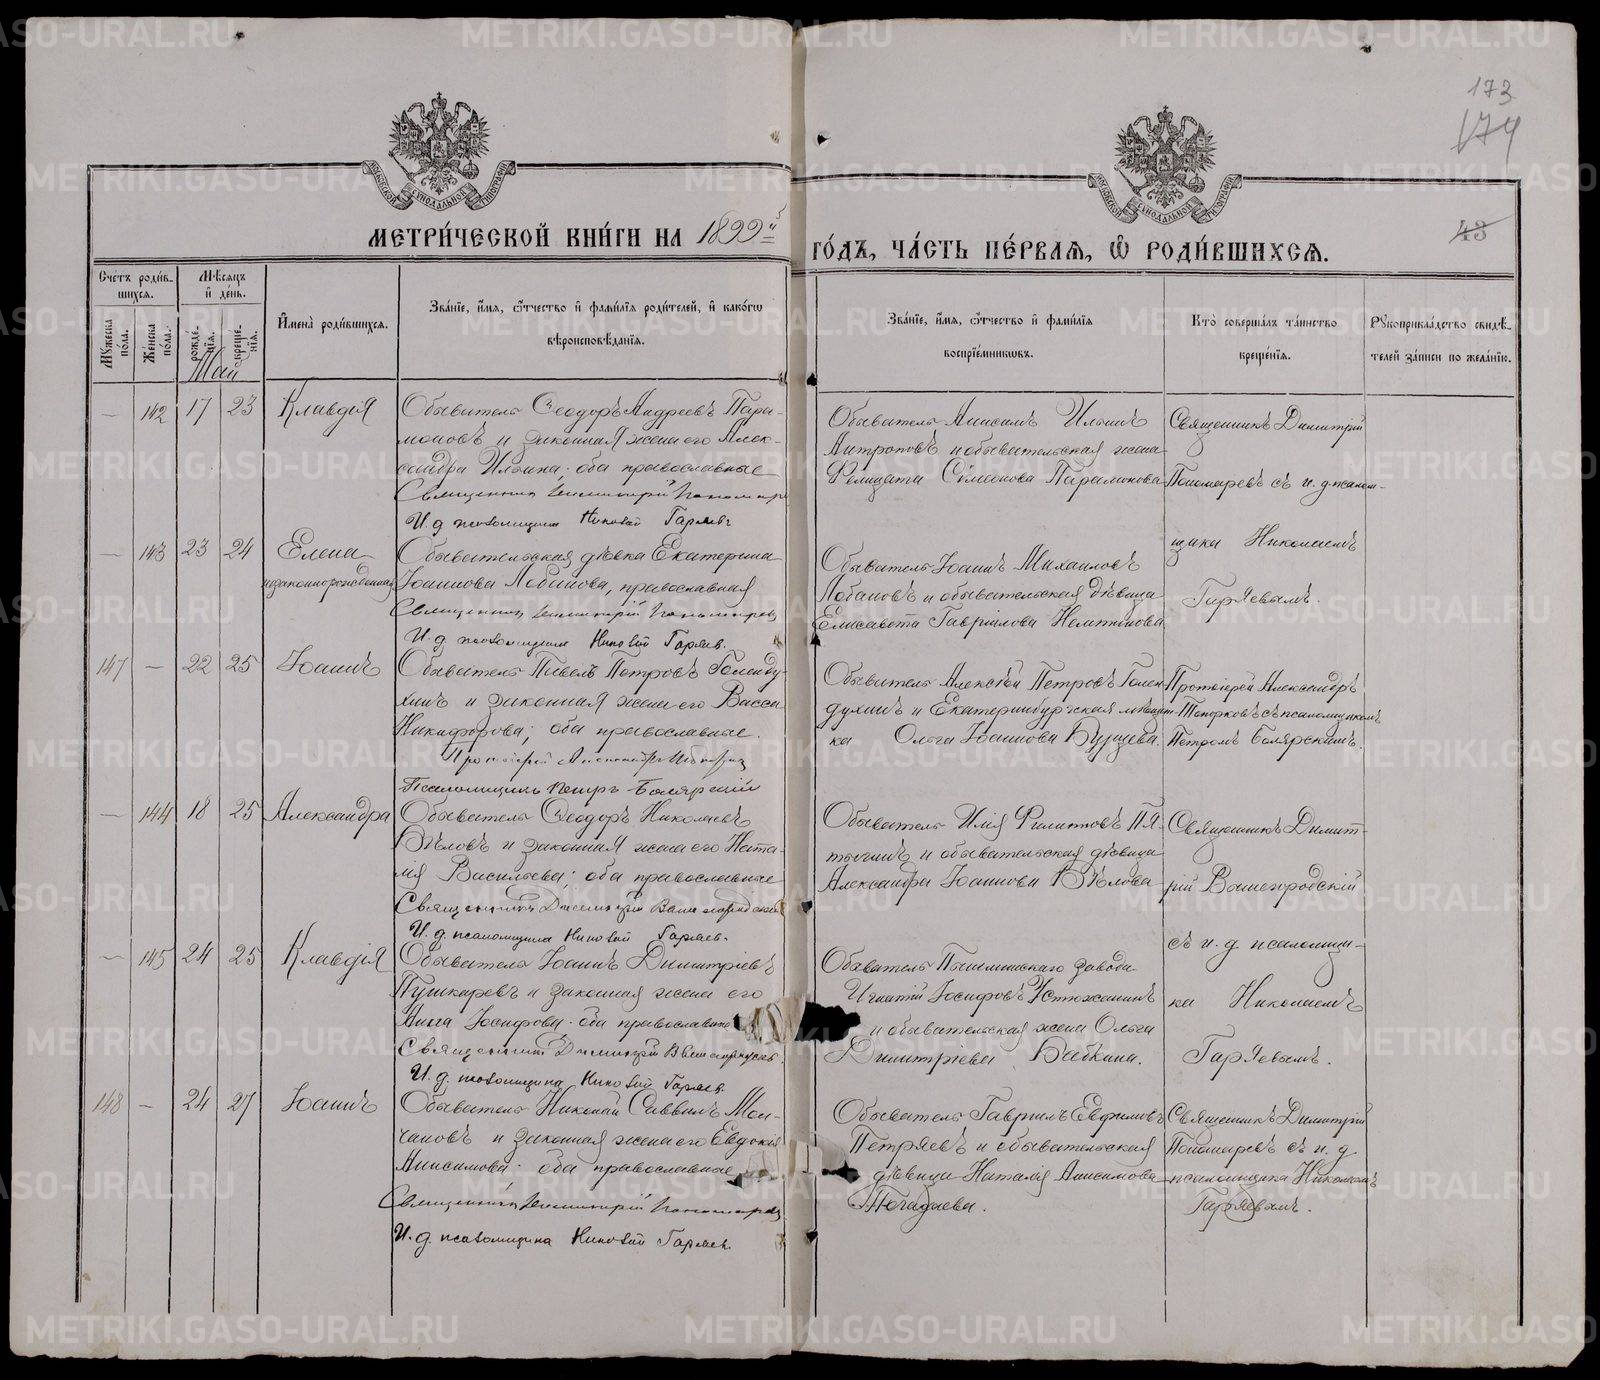 173
174
43
МОСКОВСКОЙ СѴНОДАЛЬНОЙ ТИПОГРАФІИ
МОСКОВСКОЙ СѴНОДАЛЬНОЙ ТИПОГРАФІИ
МЕТРИ́ЧЕСКОЙ КНИ́ГИ НА 1899й
ГО́ДЪ, ЧА́СТЬ ПЕ́РВАѦ, Ѿ РОДИ́ВШИХСѦ.
Сче́тъ роди́вшихсѧ.
Му́жеска по́ла.
Же́нска по́ла.
Мѣ́сѧцъ и҆ де́нь.
рожде́нїѧ.
креще́нїѧ.
И҆мена̀ роди́вшихсѧ.
Зва́нїе, и҆́мѧ, ѻ҆́тчество и҆ фами́лїѧ роди́телей, и҆ како́гѡ
вѣроисповѣ́данїѧ.
Зва́нїе, и҆́мѧ, ѻ҆́тчество и҆ фами́лїѧ
воспрїе́мниковъ.
Кто̀ соверша́лъ та́инство
креще́нїѧ.
Рꙋкоприкла́дство свидѣ́телей за́писи по жела́нїю.
Май
— 142 17 23 Клавдія
Обыватель Ѳеодоръ Андреевъ Пара-
моновъ и законная жена его Алек-
сандра Ильина; оба православные
Священникъ Димитрій Пономаревъ
И. д. псаломщика Николай Гаряевъ
Обыватель Анисимъ Ильинъ
Антроповъ и обывательская жена
Фелицата Симеонова Парамонова
Священникъ Димитрій
Пономаревъ съ и. д. псалом-
щика Николаемъ
Гаряевымъ.
— 143 23 24 Елена
незаконнорожденная
Обывательская дѣвка Екатерина
Іоаннова Лобанова, православная
Священникъ Димитрій Пономаревъ
И. д. псаломщика Николай Гаряев.
Обыватель Іоаннъ Михаиловъ
Лобановъ и обывательская дѣвица
Елисавета Гавріилова
147 — 22 25 Іоаннъ
Обыватель Павелъ Петровъ Голенду-
хинъ и законная жена его Васса
Никифорова; оба православные.
Протоіерей Александръ
Псаломщикъ Петръ Боярскій
Обыватель Алексѣй Петровъ Голен-
духинъ и Екатеринбургская мѣщан-
ка Ольга Іоаннова
Протоіерей Александръ
Топорковъ съ псаломщикомъ
Петромъ Боярскимъ.
— 144 18 25 Александра
Обыватель Ѳеодоръ Николаевъ
Бѣловъ и законная жена его Ната-
лія Васильева; оба православные
Священникъ Димитрій Вышегородскій
И. д. псаломщика Николай Гаряев.
Обыватель Илія Филипповъ Пя-
тыгинъ и обывательская дѣвица
Александра Іоаннова Бѣлова
Священникъ Димит-
рій Вышегородскій
съ и. д. псаломщи-
ка Николаемъ
Гаряевымъ.
— 145 24 25 Клавдія
Обыватель Іоаннъ Димитріевъ
Пушкаревъ и законная жена его
Анна Іосифова; оба православные
Священникъ Димитрій Вышегородскій
И. д. псаломщика Николай Гаряев.
Обыватель Пышминскаго завода
Игнатій Іосифовъ Устюжанинъ
и обывательская жена Ольга
Димитріева Бабкина.
148 — 24 27 Іоаннъ
Обыватель Николай Саввинъ Мол-
чановъ и законная жена его Евдокія
Анисимова; оба православные
Священникъ Димитрій Пономаревъ
И. д. псаломщика Николай Гаряев.
Обыватель Гавріилъ Евфимовъ
Петряевъ и обывательская
дѣвица Наталія Анисимова
Ногадаева.
Священникъ Димитрій
Пономаревъ съ и. д.
псаломщика Николаемъ
Гаряевымъ.
METRIKI.GASO-URAL.RU